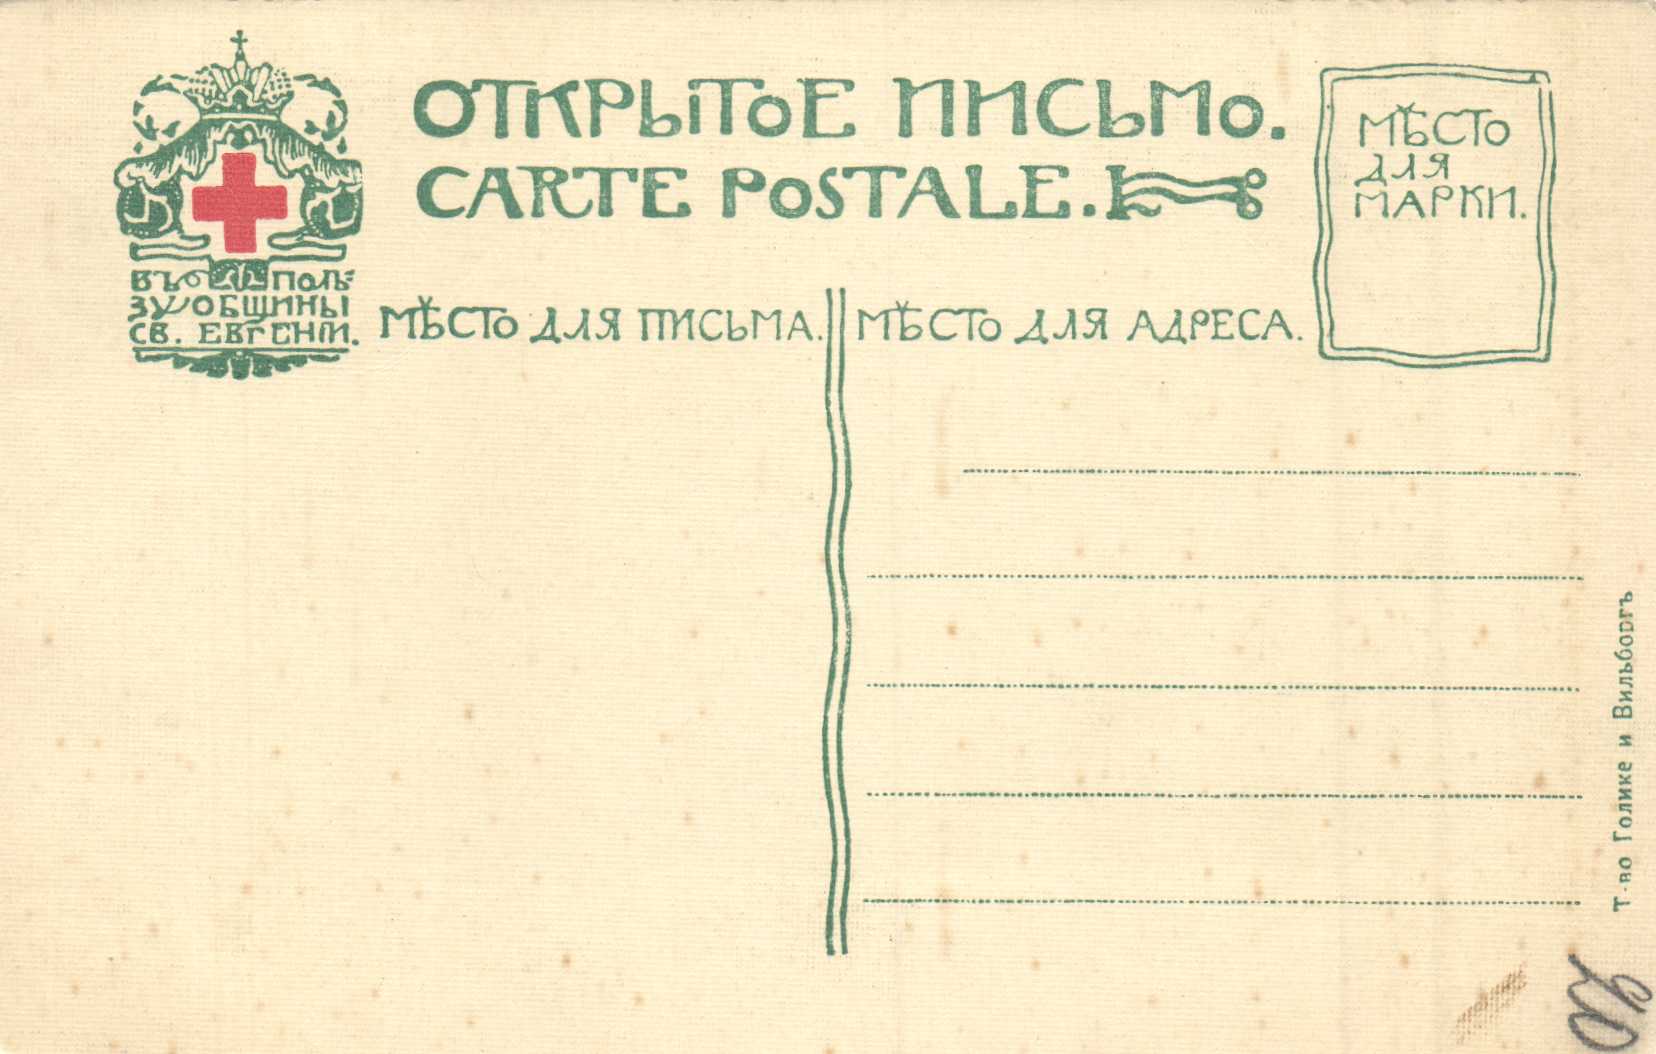 ОТКРЫТОЕ ПИСЬМО.
CARTE POSTALE.
МѢСТО
ДЛЯ
МАРКИ.
ВЪ ПОЛЬ-
ЗУ ОБЩИНЫ
СВ. ЕВГЕНІИ.
МѢСТО ДЛЯ ПИСЬМА.
МѢСТО ДЛЯ АДРЕСА.
Т-во Голике и Вильборгъ